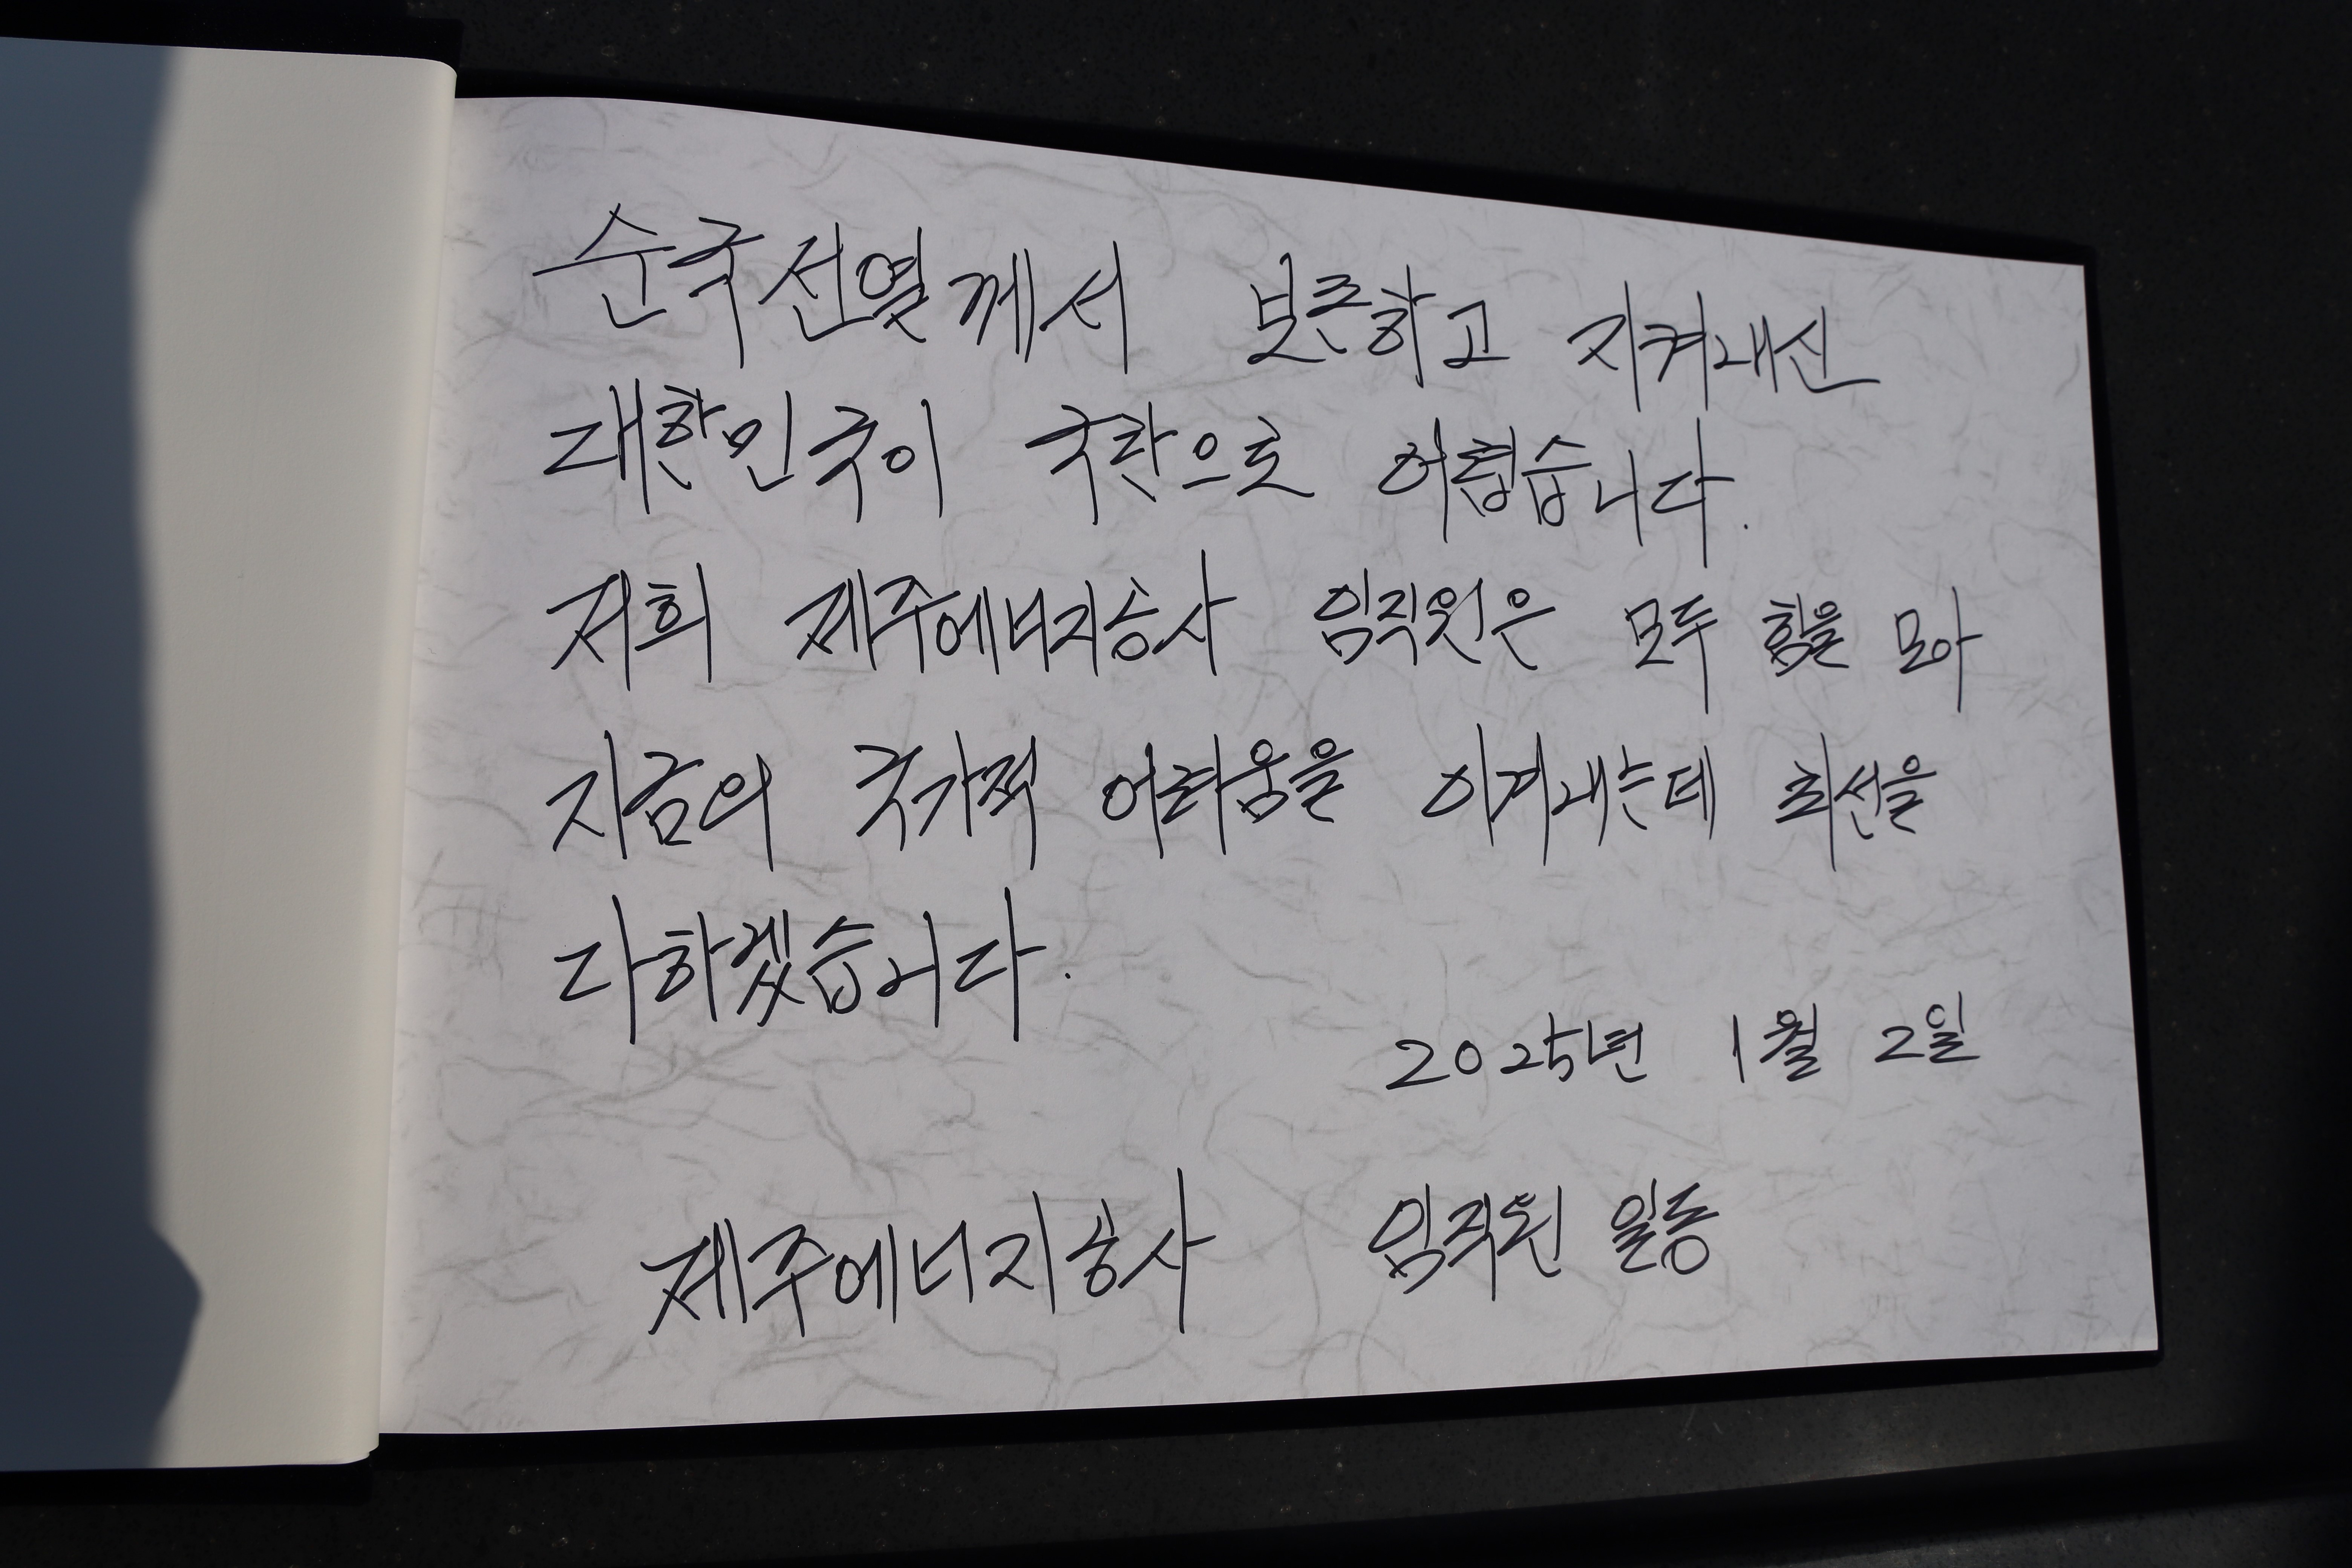 순국선열께서 보존하고 지켜내신
대한민국이 국란으로 어렵습니다.
저희 제주에너지공사 임직원은 모두 힘을 모아
지금의 국가적 어려움을 이겨내는데 최선을
다하겠습니다.
2025년 1월 2일
제주에너지공사 임직원 일동